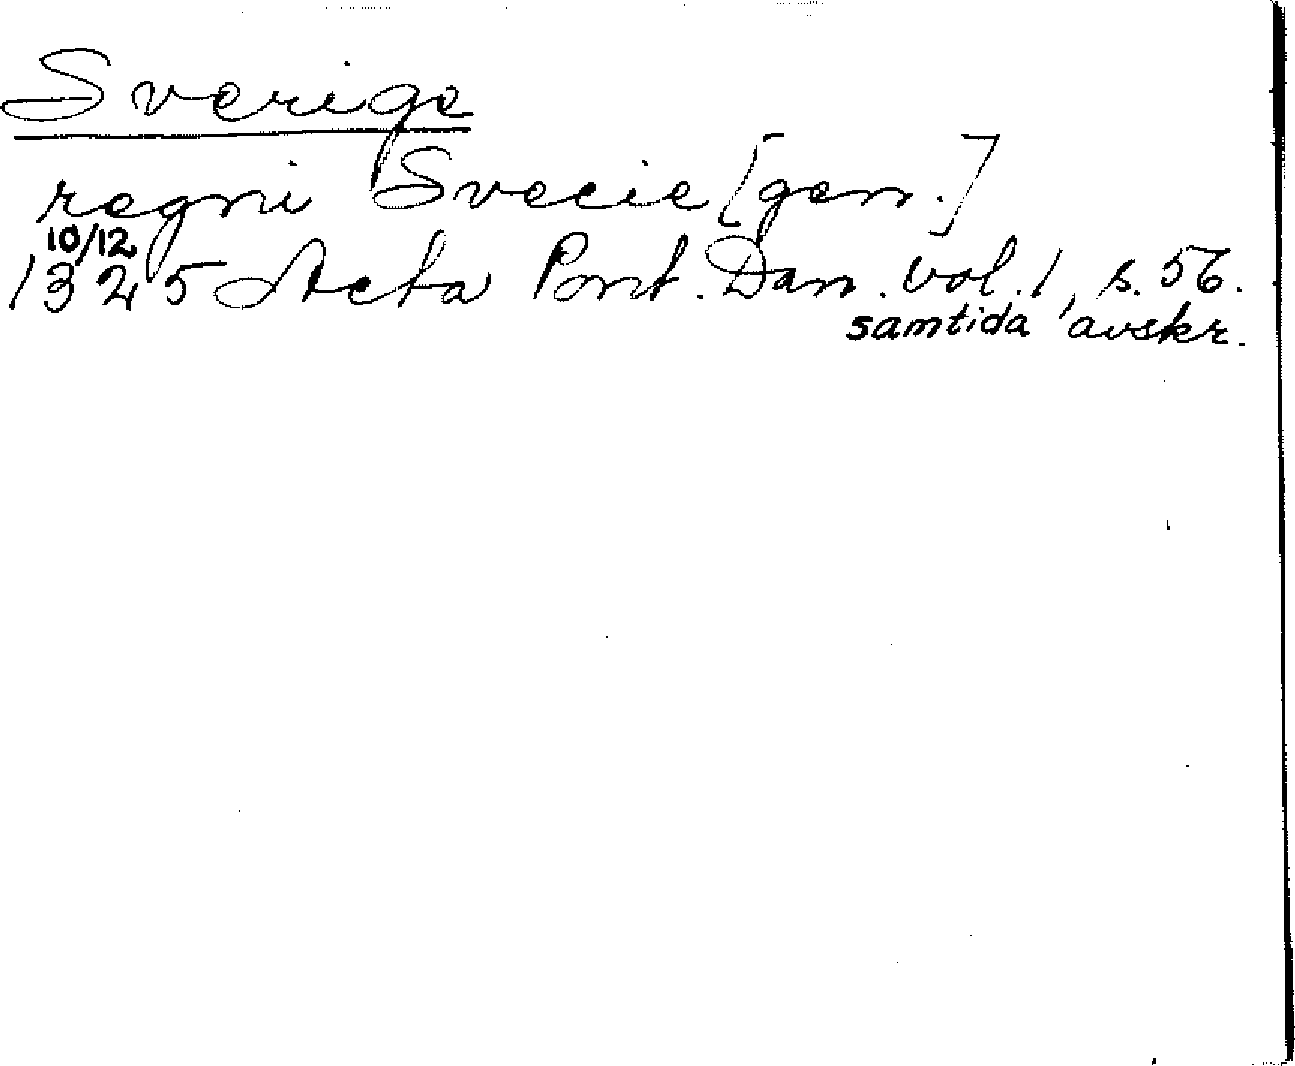 Sverige
regni Svecie [gen.]
10/12
1325 Acta Pont. Dan. vol. 1, s. 56.
samtida avskr.